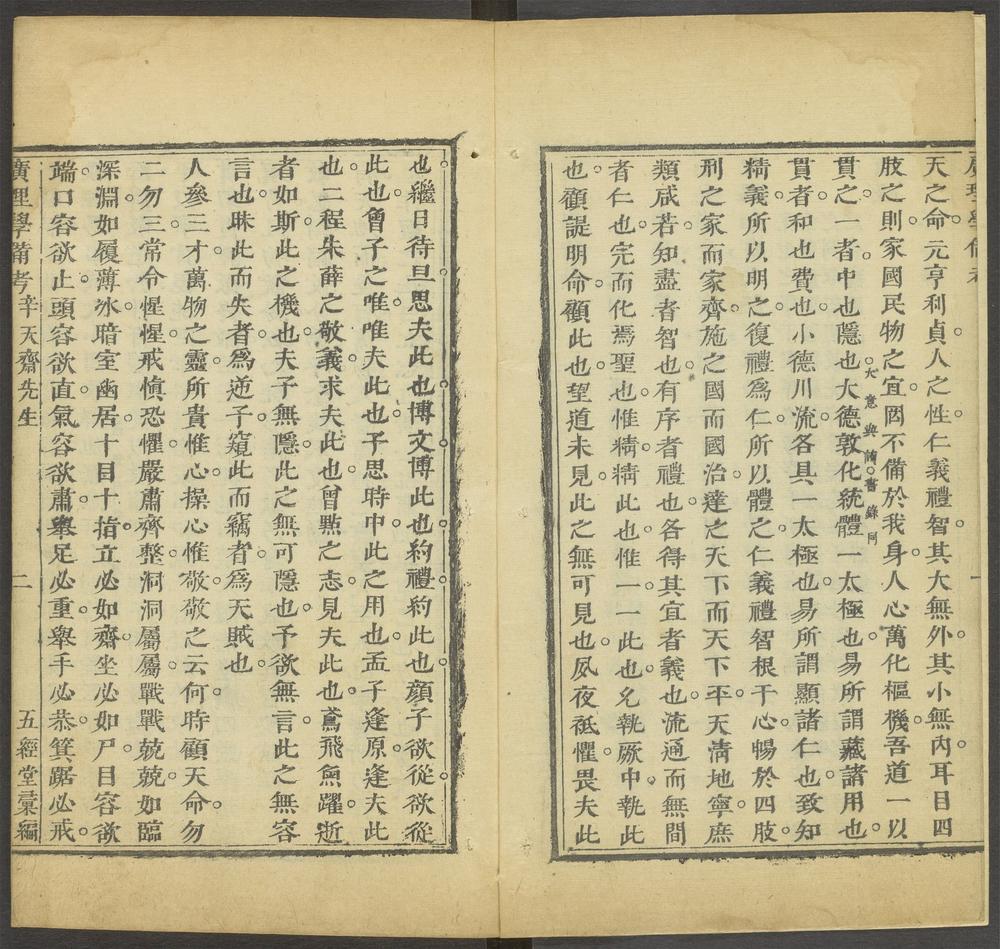 廣理學備考
天之命元亨利貞人之性仁義禮智其大無外其小無內耳目四
肢之則家國民物之宜罔不備於我身人心萬化樞機吾道一以
大意與讀書錄同
貫之一者中也隱也大德敦化統體一太極也易所謂藏諸用也
貫者和也費也小德川流各具一太極也易所謂顯諸仁也致知
精義所以明之復禮爲仁所以體之仁義禮智根于心暢於四肢
刑之家而家齊施之國而國治達之天下而天下平天清地寧庶
類咸若知盡者智也有序者禮也各得其宜者義也流通而無間
者仁也完而化焉聖也惟精精此也惟一一此也允執厥中執此
也顧諟明命顧此也望道未見此之無可見也夙夜祗懼畏夫此
也繼日待旦思夫此也博文博此也約禮約此也顏子欲從欲從
此也曾子之唯唯夫此也子思時中此之用也孟子逢原逢夫此
也二程朱薛之敬義求夫此也曾點之志見夫此也鳶飛魚躍逝
者如斯此之機也夫子無隱此之無可隱也予欲無言此之無容
言也昧此而失者爲逆子窺此而竊者爲天賊也
人參三才萬物之靈所貴惟心操心惟敬敬之云何時顧天命勿
二勿三常令惺惺戒愼恐懼嚴肅齊整洞洞屬屬戰戰兢兢如臨
深淵如履薄冰暗室幽居十目十指立必如齋坐必如尸目容欲
端口容欲止頭容欲直氣容欲肅舉足必重舉手必恭箕踞必戒
廣理學備考 辛天齋先生 二 五經堂彙編